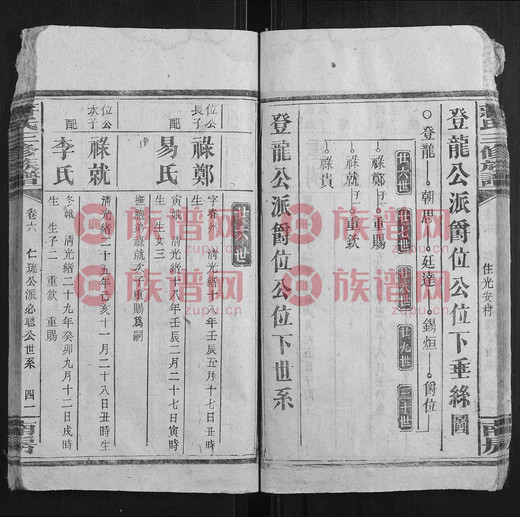 登龍公派爵位公位下垂絲圖
住光安村
登龍 朝思 廷達 錫烜 爵位
廿六世 廿七世 廿八世 廿九世 三十世
祿鄭 重賜
祿就 重欽
祿貴
登龍公派爵位公位下世系
廿六世
位公長子 祿鄭
字春
清光緒十八年壬辰五月十七日
配 易氏
寅娥 清光緒十八年壬辰二月二十七日寅時
生 生女三
撫胞弟祿就次子重賜爲嗣
位公次子 祿就
清光緒二十五年己亥十一月二十八日丑時生
配 李氏
冬娥 清光緒二十九年癸卯九月十二日戌時
生 生子二 重欽 重賜
氏三修族譜
卷六 仁珫公派必聰公世系 四二
南房
族谱网